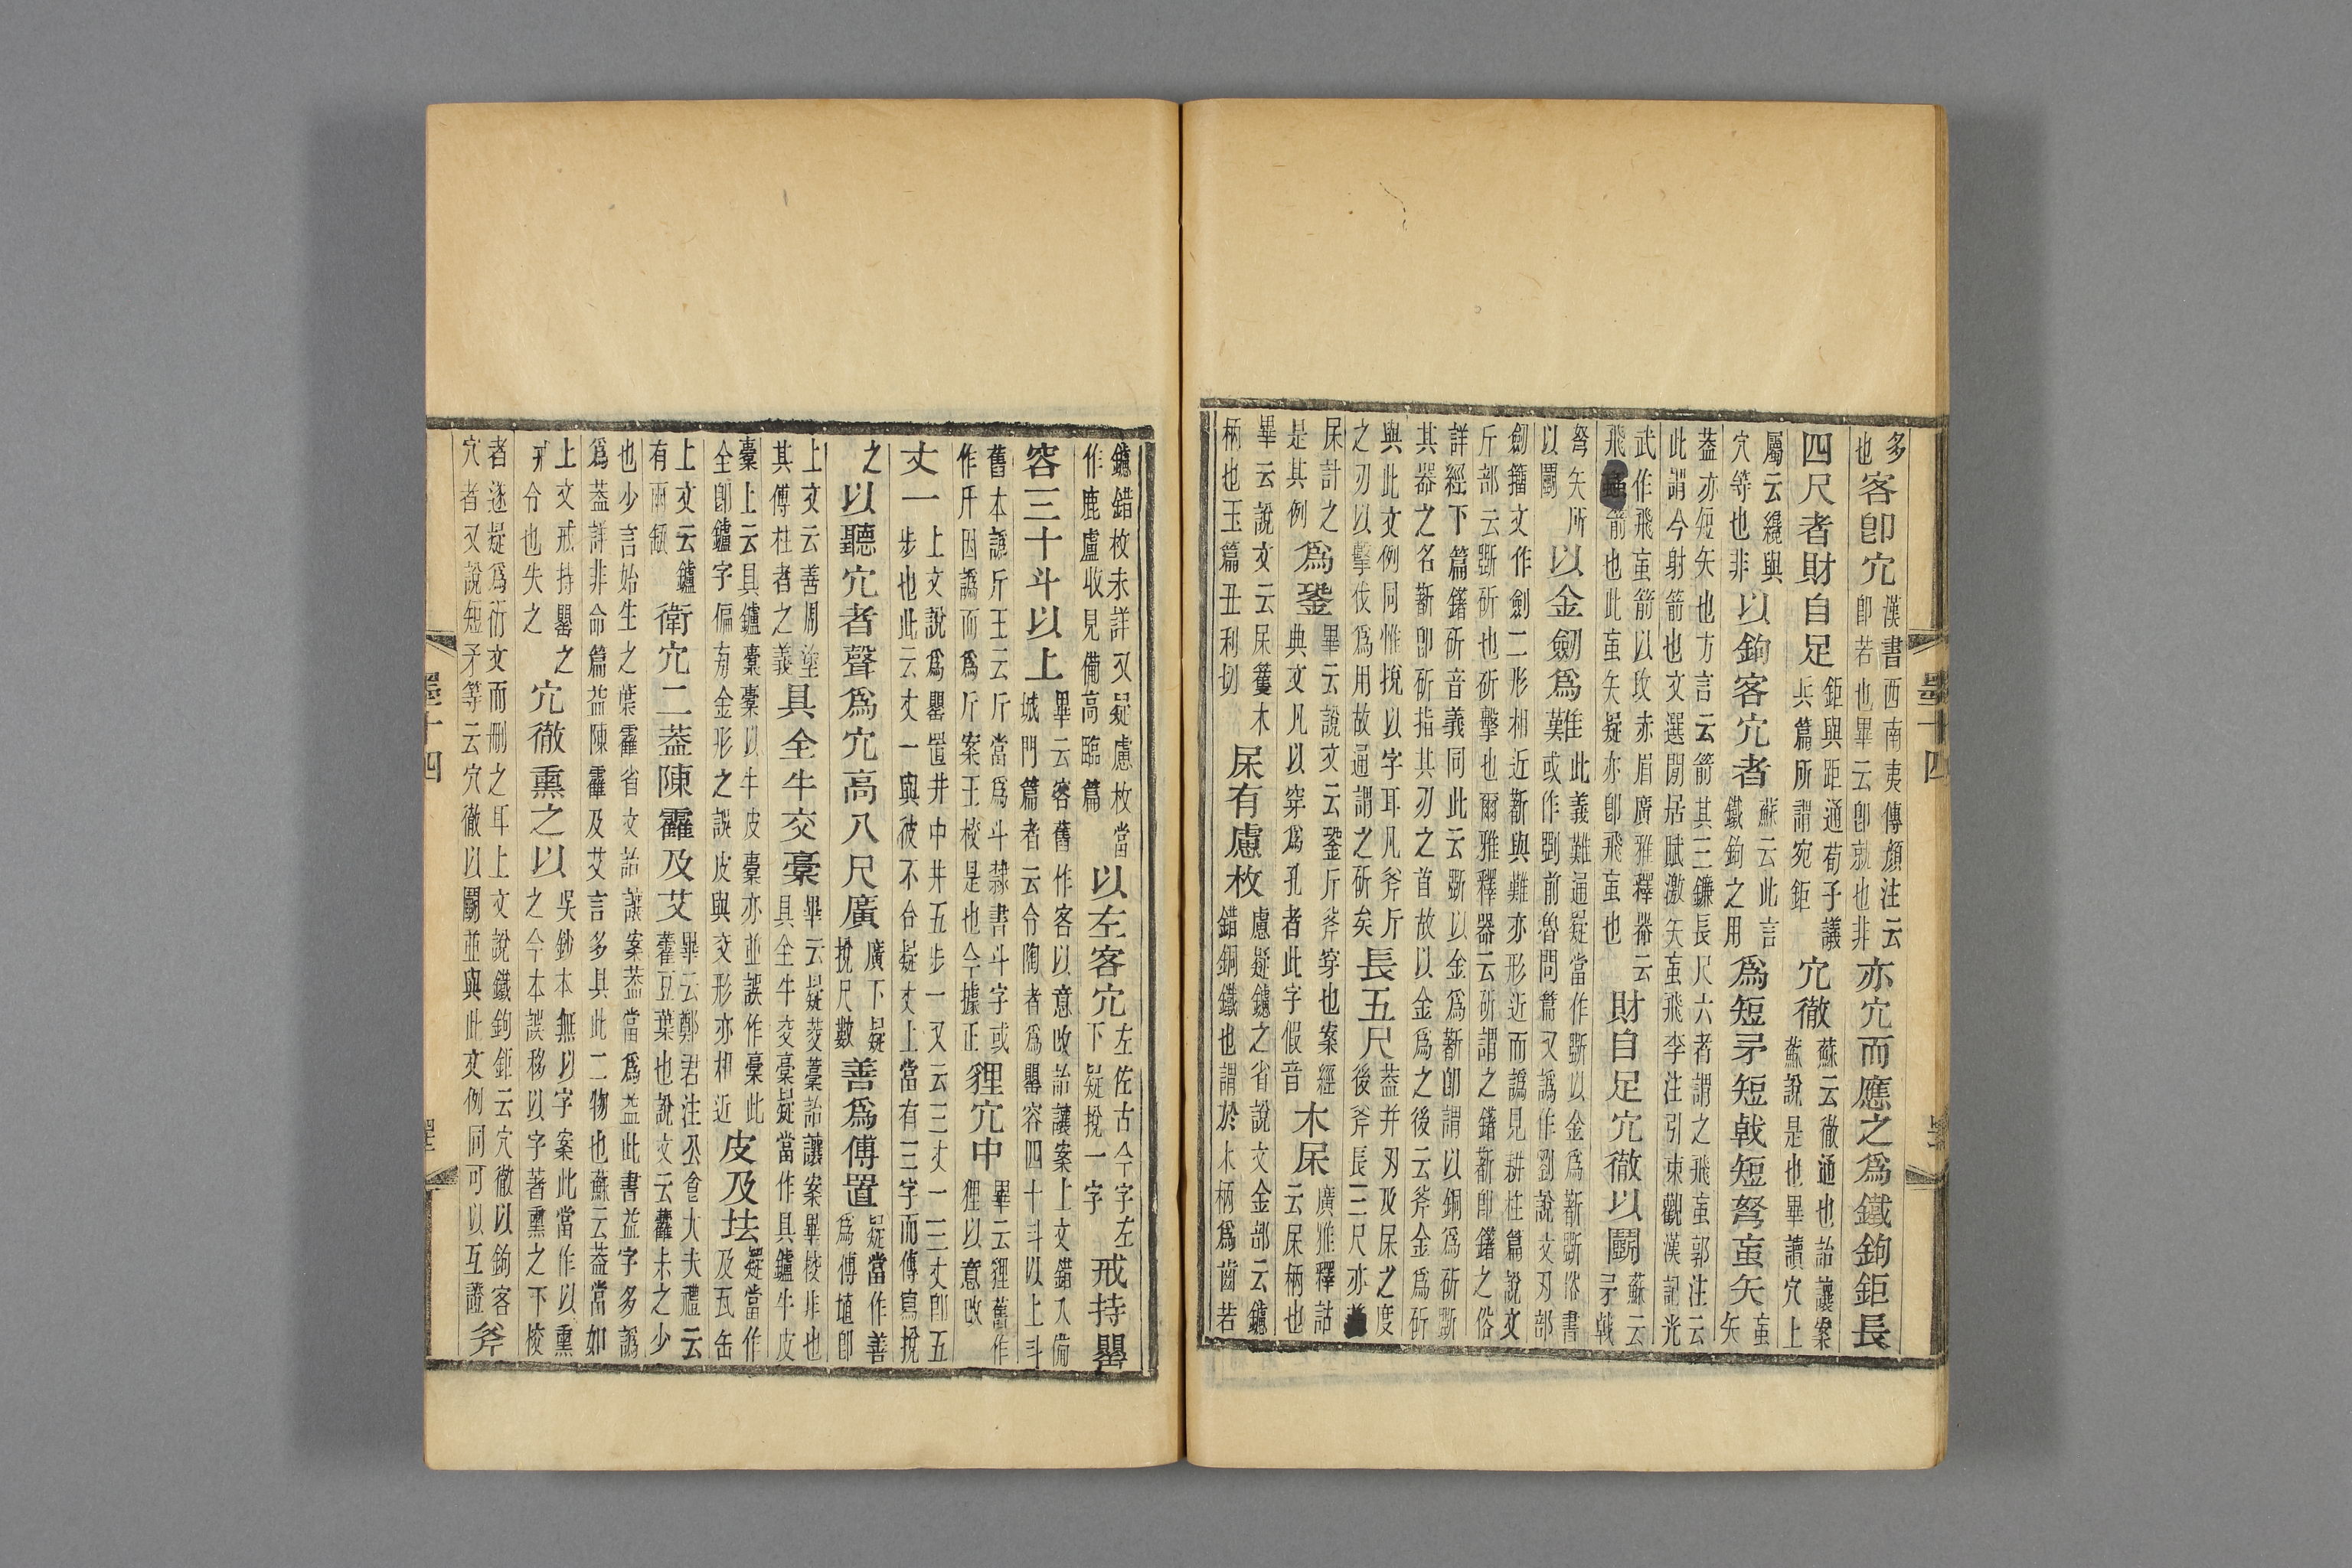 多也客卽穴漢書西南夷傳顏注云卽若也畢云卽就也非亦穴而應之爲鐵鉤鉅長
四尺者財自足鉅與距通荀子議兵篇所謂宛鉅穴徹蘇云徹通也詒讓案蘇說是也畢讀穴上
屬云纔與穴等也非以鉤客穴者蘇云此言鐵鉤之用爲短矛短戟短弩䖟矢䖟矢
蓋亦短矢也方言云箭其三鐮長尺六者謂之飛䖟郭注云此謂今射箭也文選閒居賦激矢䖟飛李注引東觀漢記光
武作飛䖟箭以攻赤眉廣雅釋器云飛䖟箭也此䖟矢疑亦卽飛䖟也財自足穴徹以鬭蘇云矛戟
弩矢所以鬭以金劒爲難此義難通疑當作斲以金爲斲斲俗書或作劉前魯問篇又譌作劉說文刃部
劒籀文作劍二形相近斲與難亦形近而譌見耕柱篇說文斤部云斲斫也斫擊也爾雅釋器云斫謂之鐯斲卽鐯之俗
詳經下篇鐯斫音義同此云斲以金爲斲卽謂以銅爲斫斲其器之名斲卽斫指其刃之首故以金爲之後云斧金爲斫
與此文例同惟挩以字耳凡斧斤之刃以擊伐爲用故通謂之斫矣長五尺蓋并刃及杘之度後斧長三尺亦
杘計之是其例爲銎畢云說文云銎斤斧穿也案經典文凡以穿爲孔者此字假音木杘廣雅釋詁云杘柄也
畢云說文云杘籰木柄也玉篇丑利切杘有慮枚慮疑鑢之省說文金部云鑢錯銅鐵也謂於木柄爲齒若
墨十四
鑢錯枚未詳又疑慮枚當作鹿盧收見備高臨篇以左客穴左佐古今字左下疑挩一字戒持罌
容三十斗以上畢云容舊作客以意改詒讓案上文錯入備城門篇者云令陶者爲罌容四十斗以上斗
舊本譌斤王云斤當爲斗隸書斗字或作斤因譌而爲斤案王校是也今據正貍穴中畢云貍舊作狸以意改
丈一上文說爲罌置井中井五步一又云三丈一三丈卽五步也此云丈一與彼不合疑丈上當有三字而傳寫挩
之以聽穴者聲爲穴高八尺廣廣下疑挩尺數善爲傅置疑當作善爲傅埴卽
上文云善周塗其傅柱者之義具全牛交槀畢云疑茭藁詒讓案畢校非也具全牛交槀疑當作具鑪牛皮
槖上云具鑪槖槖以牛皮槖亦並誤作槀此全卽鑪字偏㫄金形之誤皮與交形亦相近皮及𤬪疑當作及瓦缶
上文云鑪有兩缻衛穴二蓋陳靃及艾畢云鄭君注公食大夫禮云藿豆葉也說文云藿未之少
也少言始生之葉靃省文詒讓案蓋當爲益此書益字多譌爲蓋詳非命篇益陳靃及艾言多具此二物也蘇云蓋當如
上文戒持罌之戒令也失之穴徹熏之以吳鈔本無以字案此當作以熏之今本誤移以字著熏之下校
者遂疑爲衍文而刪之耳上文說鐵鉤鉅云穴徹以鉤客穴者又說短矛等云穴徹以鬭並與此文例同可以互證斧
墨十四